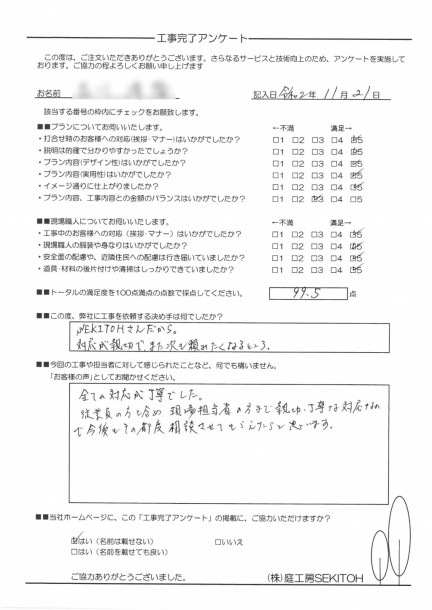 工事完了アンケート
この度は、ご注文いただきありがとうございます。さらなるサービスと技術向上のため、アンケートを実施して
おります。ご協力の程よろしくお願い申し上げます
お名前
記入日 令和2年 11月 21日
該当する番号の枠内にチェックをお願致します。
■■プランについてお伺いいたします。 ←不満 満足→
・打合せ時のお客様への対応(挨拶・マナー)はいかがでしたか? □1 □2 □3 □4 ☑5
・説明は的確で分かりやすかったでしょうか? □1 □2 □3 □4 ☑5
・プラン内容(デザイン性)はいかがでしたか? □1 □2 □3 □4 ☑5
・プラン内容(実用性)はいかがでしたか? □1 □2 □3 □4 ☑5
・イメージ通りに仕上がりましたか? □1 □2 □3 □4 ☑5
・プラン内容、工事内容との金額のバランスはいかがでしたか? □1 □2 ☑3 □4 □5
■■現場職人についてお伺いいたします。 ←不満 満足→
・工事中のお客様への対応(挨拶・マナー)はいかがでしたか? □1 □2 □3 □4 ☑5
・現場職人の服装や身なりはいかがでしたか? □1 □2 □3 □4 ☑5
・安全面の配慮や、近隣住民への配慮は行き届いていましたか? □1 □2 □3 □4 ☑5
・道具・材料の後片付けや清掃はしっかりできていましたか? □1 □2 □3 □4 ☑5
■■トータルの満足度を100点満点の点数で採点してください。 99.5 点
■■この度、弊社に工事を依頼する決め手は何でしたか?
SEKITOHさんだから。
対応が親切で、また次も頼みたくなるところ。
■■今回の工事や担当者に対して感じられたことなど、何でも構いません。
「お客様の声」としてお聞かせください。
全ての対応が丁寧でした。
従業員の方も含め 現場担当者の方まで親切、丁寧な対応なの
で今後もその都度 相談させてもらえたらと思います。
■■当社ホームページに、この「工事完了アンケート」の掲載に、ご協力いただけますか?
☑はい (名前は載せない) □いいえ
□はい (名前を載せても良い)
ご協力ありがとうございました。
(株)庭工房SEKITOH